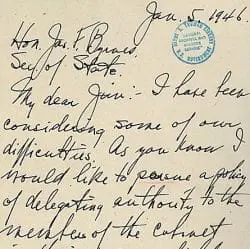 Jan. 5, 1946
Hon. Jas. F. Byrnes
Sec'y of State.
My dear Jim:- I have been
considering some of our
difficulties. As you know I
would like to pursue a policy
of delegating authority to the
members of the cabinet